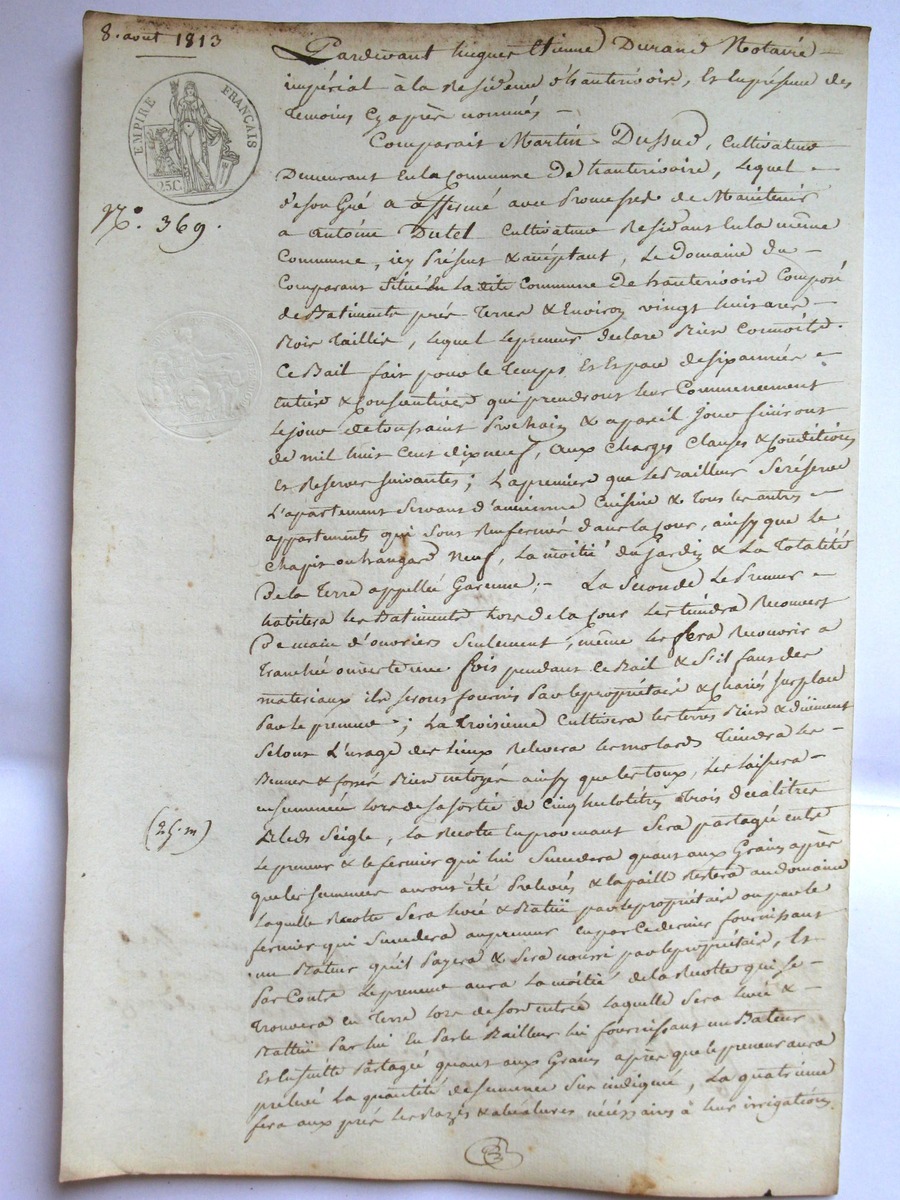 8. aout 1813
EMPIRE FRANÇAIS
25.C.
N.° 369.
Pardevant hugues Etienne Durand Notaire
impérial à la Residence d'hauterivoire, Et En présence des
Temoins Cy après nommés
Comparait Martin Dussud, Cultivateur
Demeurant En la Commune De hauterivoire, Lequel
de son Gré a affermé avec Promesse de Maintenir
a Antoine Dutel Cultivateur Residant En la même
Commune, icy Présent & acceptant, Le Domaine du
Comparant Situé En la dite Commune De hauterivoire Composé
de Batiments près Terres & Environ vingt huit ares
Bois Taillis, Lequel Le preneur declare Bien Connoitre.
Ce Bail fait pour le Temps Et Espace de six années
Entieres & Consecutives qui prendront leur Commencement
Le jour de toussaint Prochain & a pareil jour finiront
de mil huit Cent dix neuf, aux Charges Clauses & Conditions
Et Reserves suivantes; La premiere que Le Bailleur Se réserve
L'apartement Servant d'ancienne Cuisine & Tous les autres
appartements qui sont Renfermés dans la Cour, ainsy que le
Chapit ou hangard Neuf, La moitié du Jardin & La Totalité
De la Terre appellée Garenne; La Seconde Le Preneur
habitera Les Batiments hors de la Cour Les tiendra Recouvert
De main d'ouvriers Seulement, même les fera Recouvrir a
Tranchée ouverte une fois pendant Ce Bail & S'il faut des
materiaux ils seront fournis Par le propriétaire & Chariés sur place
Par le preneur; La Troisieme Cultivera les terres Bien & düement
Selon L'usage des Lieux Relevera les Tiendra Les
& fossés Bien netoyés ainsy que les Les laissera
En semence lors de sa Sortie de Cinq hectolitres Trois decalitres
(25. m)
Bleds Seigle, La Recolte En provenant Sera partagée entre
Le preneur & le fermier qui lui Succedera quant aux Grains après
que les semences auront été Prelevées & la paille Restera au domaine
Laquelle Recolte Sera Levée & Battüe par le propriétaire ou par le
fermier qui Succedera au preneur En par Ce dernier fournissant
un Bateur qu'il Payera & Sera nourri par le propriétaire, Et
Par Contre Le preneur aura La moitié de la Recolte qui se
Trouvera en Terre lors de son Entrée Laquelle Sera Levée &
Battüe Par lui En Par le Bailleur lui fournissant un Bateur
Et Ensuitte Partagée quant aux Grains après que le preneur aura
prelevé La quantité de semence Sus indiquée, La quatrieme
fera aux près les Razes & nécéssaires à leur irrigations